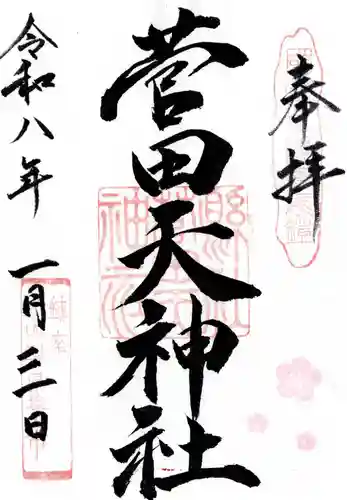 奉拝
菅田天神社
令和八年
一月三日